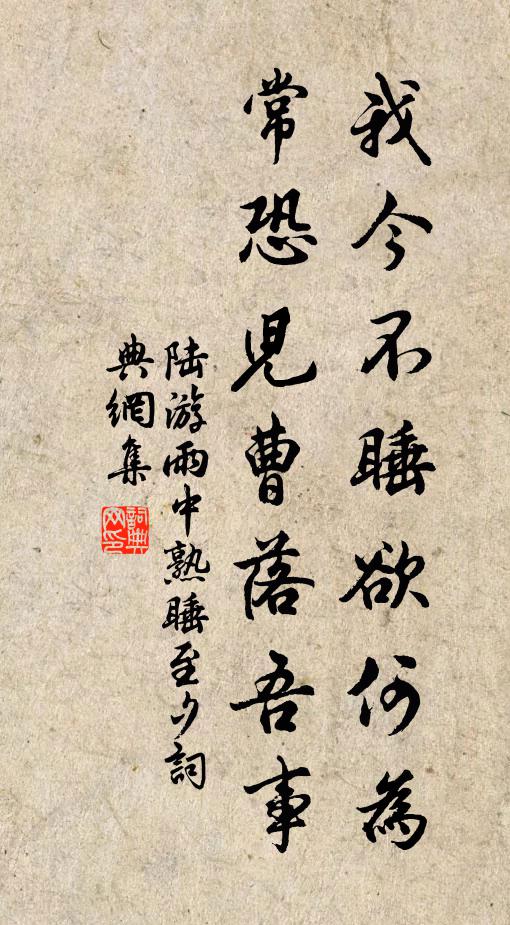 我今不睡欲何為
常恐兒曹落吾事
陸游雨中熟睡至夕詞
典網集
詞典
网印